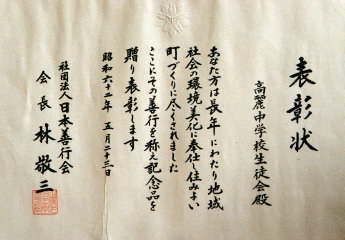 表彰状
高麗中学校生徒会殿
あなた方は長年にわたり地域
社会の環境美化に奉仕し住みよい
町づくりに尽くされました
ここにその善行を称え記念品を
贈り表彰します
昭和六十二年 五月二十三日
社団法人日本善行会
会長 林敬三